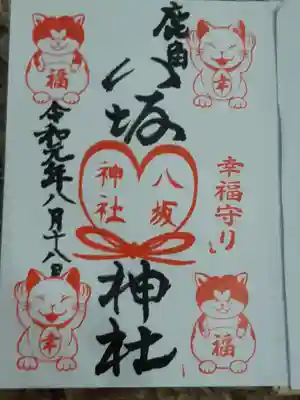 幸福守り
鹿角
八坂
神社
八坂
神社
令和元年八月十八日
福
幸
幸
福